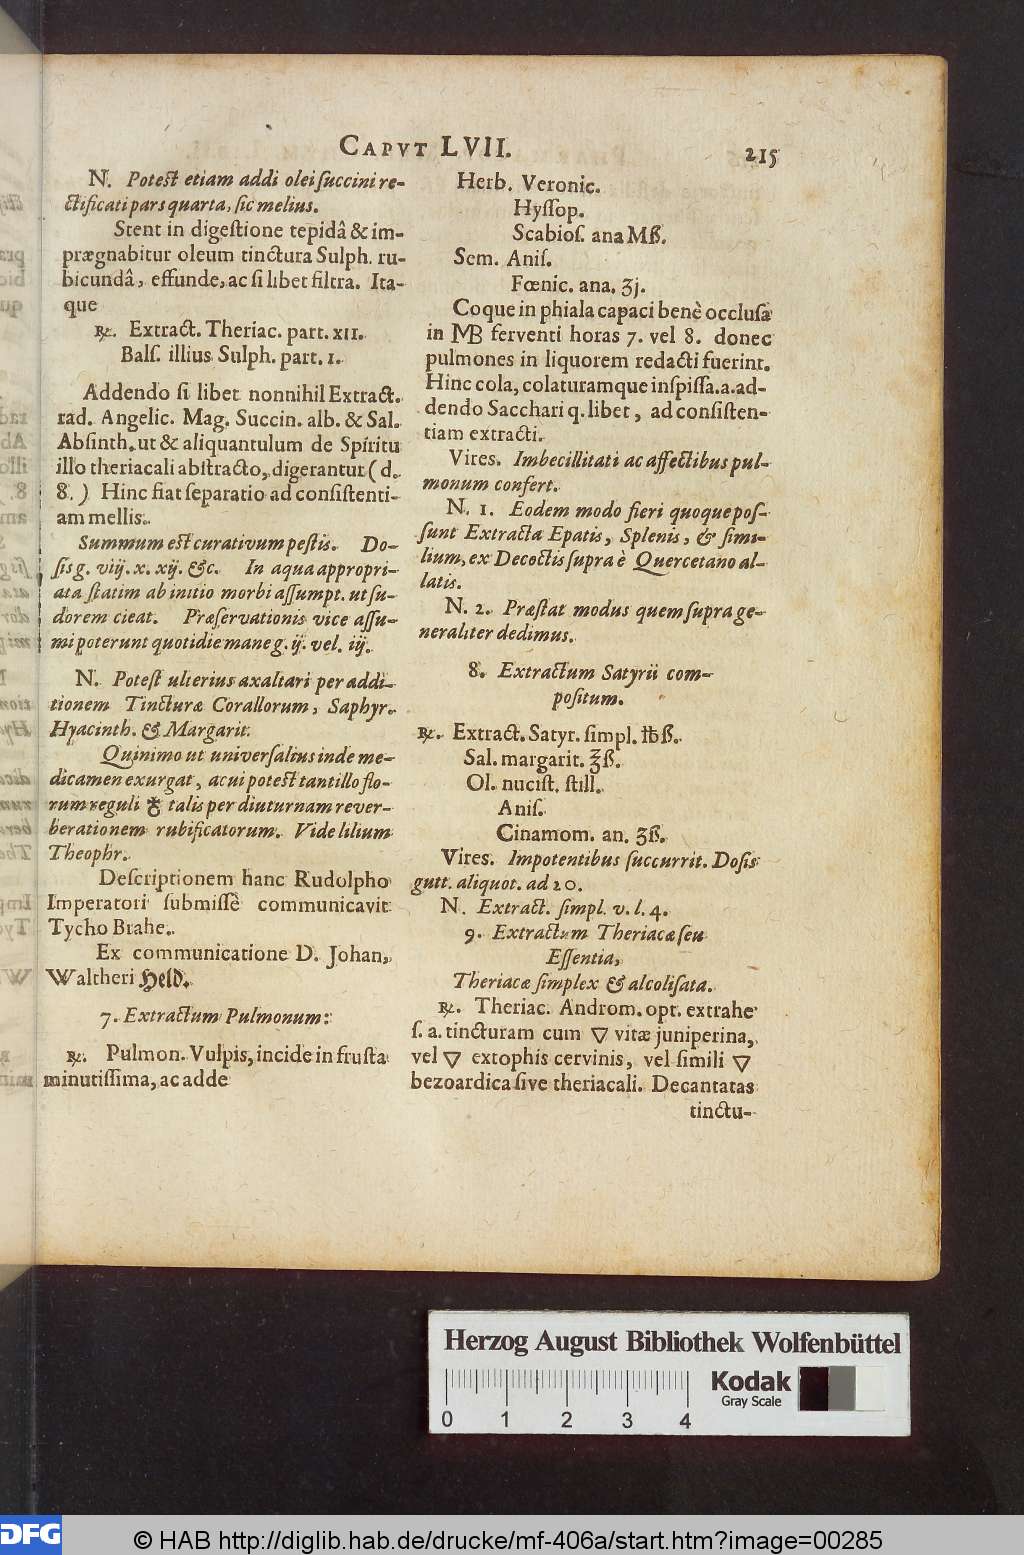 CAPVT LVII.
215
N. Poteſt etiam addi olei ſuccini re-
ctificati pars quarta, ſic melius.
Stent in digeſtione tepidâ & im-
prægnabitur oleum tinctura Sulph. ru-
bicundâ, effunde, ac ſi libet filtra. Ita-
que
℞. Extract. Theriac. part. XII.
Balſ. illius Sulph. part. 1.
Addendo ſi libet nonnihil Extract.
rad. Angelic. Mag. Succin. alb. & Sal.
Abſinth. ut & aliquantulum de Spiritu
illo theriacali abſtracto, digerantur (d.
8.) Hinc fiat ſeparatio ad conſiſtenti-
am mellis.
Summum eſt curativum peſtis. Do-
ſis g. viij. x. xij. &c. In aqua appropri-
ata ſtatim ab initio morbi aſſumpt. ut ſu-
dorem cieat. Præſervationis vice aſſu-
mi poterunt quotidie mane g. ij. vel. iij.
N. Poteſt ulterius axaltari per addi-
tionem Tincturæ Corallorum, Saphyr.
Hyacinth. & Margarit.
Quinimo ut univerſalius inde me-
dicamen exurgat, acui poteſt tantillo flo-
rum reguli ♁ talis per diuturnam rever-
berationem rubificatorum. Vide lilium
Theophr.
Deſcriptionem hanc Rudolpho
Imperatori ſubmiſsè communicavit
Tycho Brahe.
Ex communicatione D. Johan.
Waltheri Held.
7. Extractum Pulmonum:
℞. Pulmon. Vulpis, incide in fruſta
minutiſſima, ac adde
Herb. Veronic.
Hyſſop.
Scabioſ. ana Mß.
Sem. Aniſ.
Fœnic. ana. ʒj.
Coque in phiala capaci benè occluſa
in MB ferventi horas 7. vel 8. donec
pulmones in liquorem redacti fuerint.
Hinc cola, colaturamque inſpiſſa. a. ad-
dendo Sacchari q. libet, ad conſiſten-
tiam extracti.
Vires. Imbecillitati ac affectibus pul-
monum confert.
N. 1. Eodem modo fieri quoque poſ-
ſunt Extracta Epatis, Splenis, & ſimi-
lium, ex Decoctis ſupra è Quercetano al-
latis.
N. 2. Præſtat modus quem ſupra ge-
neraliter dedimus.
8. Extractum Satyrii com-
poſitum.
℞. Extract. Satyr. ſimpl. ℔ß.
Sal. margarit. ℥ß.
Ol. nuciſt. ſtill.
Aniſ.
Cinamom. an. ʒß.
Vires. Impotentibus ſuccurrit. Doſis
gutt. aliquot. ad 20.
N. Extract. ſimpl. v. l. 4.
9. Extractum Theriacæ ſeu
Eſſentia,
Theriacæ ſimplex & alcoliſata.
℞. Theriac. Androm. opt. extrahe
ſ. a. tincturam cum ▽ vitæ juniperina,
vel ▽ extophis cervinis, vel ſimili ▽
bezoardica ſive theriacali. Decantatas
tinctu-
Herzog August Bibliothek Wolfenbüttel
Kodak
Gray Scale
0 1 2 3 4
DFG
© HAB http://diglib.hab.de/drucke/mf-406a/start.htm?image=00285